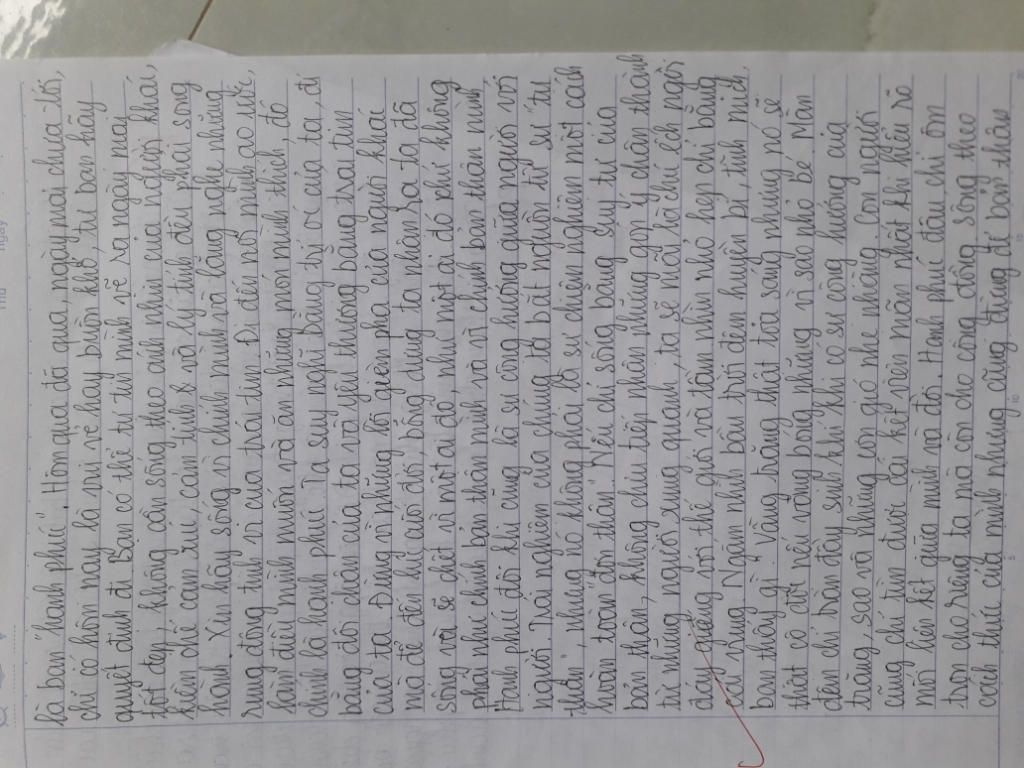 là bạn "hạnh phúc". Hôm qua đã qua, ngày mai chưa tới,
chỉ có hôm nay là vui vẻ hay buồn khổ, tự bạn hãy
quyết định đi. Bạn có thể tự tay mình vẽ ra ngày mai
tốt đẹp, không cần sống theo ánh nhìn của người khác,
kiềm chế cảm xúc, cảm tính & và lý tính đều phải song
hành. Xin hãy sống vì chính mình và lắng nghe những
rung động tinh vi của trái tim. Đi đến nơi mình ao ước,
làm điều mình muốn và ăn những món mình thích, đó
chính là hạnh phúc. Ta suy nghĩ bằng trí óc của ta, đi
bằng đôi chân của ta và yêu thương bằng trái tim
của ta. Đừng vì những lời gièm pha của người khác
mà để đến khi cuối đời, bỗng dưng ta nhận ra ta đã
sống và sẽ chết vì một ai đó, phúc một ai đó chứ không
phải phúc chính bản thân mình và vì chính bản thân mình.
Hạnh phúc đôi khi cũng là sự cộng hưởng giữa người với
người. Trải nghiệm của chúng ta bắt nguồn từ sự tự
thân, nhưng nó không phải là sự chiêm nghiệm một cách
hoàn toàn đơn thân. Nếu chỉ sống bằng suy tư của
bản thân, không chịu tiếp nhận những gợi ý chân thành
từ những người xung quanh, ta sẽ mãi là chú ếch ngồi
đáy giếng với thế giới và tầm nhìn nhỏ hẹp chỉ bằng
cái vung. Ngắm nhìn bầu trời đêm huyền bí, tĩnh mịch,
bạn thấy gì? Vầng trăng thật tỏa sáng nhưng nó sẽ
thật cô đơn nếu vắng bóng những vì sao nhỏ bé. Màn
đêm chỉ tràn đầy sinh khí khi có sự cộng hưởng của
trăng, sao và những cơn gió nhè nhẹ. Con người
cũng chỉ tìm được cái kết viên mãn nhất khi hiểu rõ
mối liên kết giữa mình và đời. Hạnh phúc đâu chỉ ôm
trọn cho riêng ta mà còn cho cộng đồng. Sống theo
cách thức của mình nhưng cũng đừng để bản thân